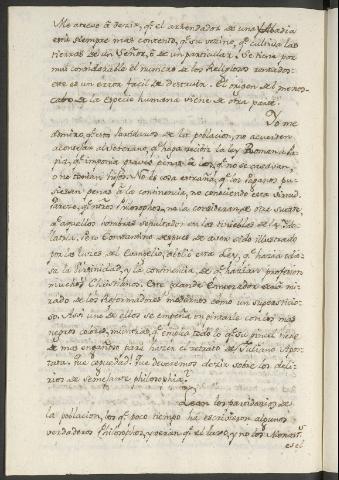 Me atrevo à dezir, qᵉ el arrendador de una Abadia
està siempre mas contento, qᵉ su vezino, qᵉ cultiva las
tierras de un Señor, ò de un particular. Se tiene por
mui considerable el numero de los Religiosos
este es un error facil de destruir. El origen del menos-
cabo de la especie humana viene de otra parte.
Yo me
admiro, qᵉ los partidarios de la poblacion, no
aconsejar al soberano, qᵉ haga la ley Romana
pia, qᵉ imponia graves penas à los, qᵉ no se casavan,
ò no tenian hijos. No es cosa estraña, qᵉ los Paganos pu-
siesen penas à la continencia, no conociendo esta virtud.
Parece, qᵉ nᵗʳᵒˢ Philosophos, no la consideran de otra suerte,
qᵉ aquellos hombres sepultados en las tinieblas de la
latria. Pero Constantino despues de aver sido illustrado
por las luzes del Evangelio, abolió esta Ley, qᵉ hazia odio-
sa la Virginidad, y la continencia, de qᵉ hazian profesion
muchos Christianos. Este grande Emperador es
rado de los Reformadores modernos como un supersticio-
so. Aun uno de ellos se empeña en pintarle con los mas
negros colores, mientras, qᵉ emplea todo lo qᵉ su pincel tiene
de mas engañoso para hazer el retrato de Juliano Apos-
tata. Que ceguedad! Que devemos dezir sobre los deli-
rios de semejante philosophia?
Lean los partidarios de
la poblacion, los qᵉ poco tiempo ha escrivieron algunos
verdaderos Philosophos, y veran qᵉ el luxo, y no los Monast.ˢ
es el